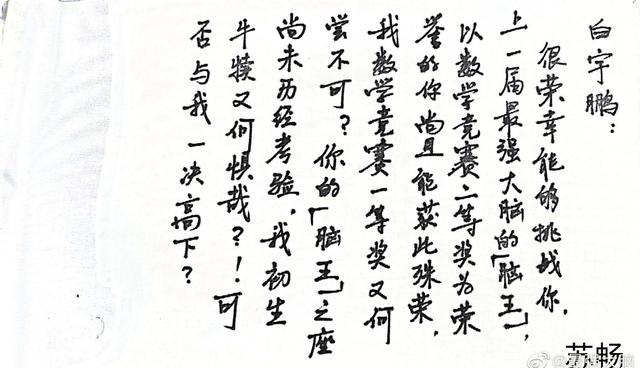 白宇鹏：
很荣幸能够挑战你，
上一届最强大脑的「脑王」，
以数学竞赛二等奖为荣
誉的你尚且能获此殊荣，
我数学竞赛一等奖又何
尝不可？你的「脑王」之座
尚未历经考验，我初生
牛犊又何惧哉？！可
否与我一决高下？
苏畅